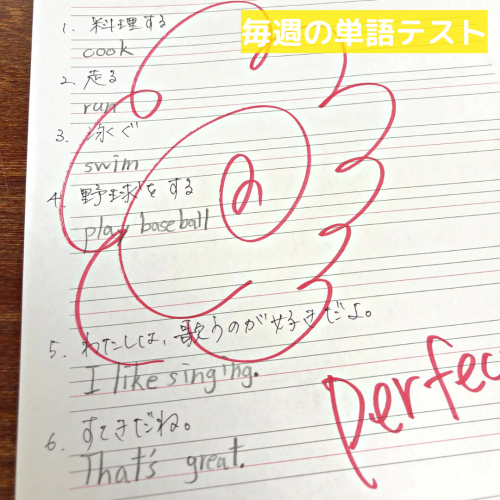 毎週の単語テスト
1. 料理する
cook
2. 走る
run
3. 泳ぐ
swim
4. 野球をする
play baseball
5. わたしは、歌うのが好きだよ。
I like singing.
6. すてきだね。
That's great.
perfec